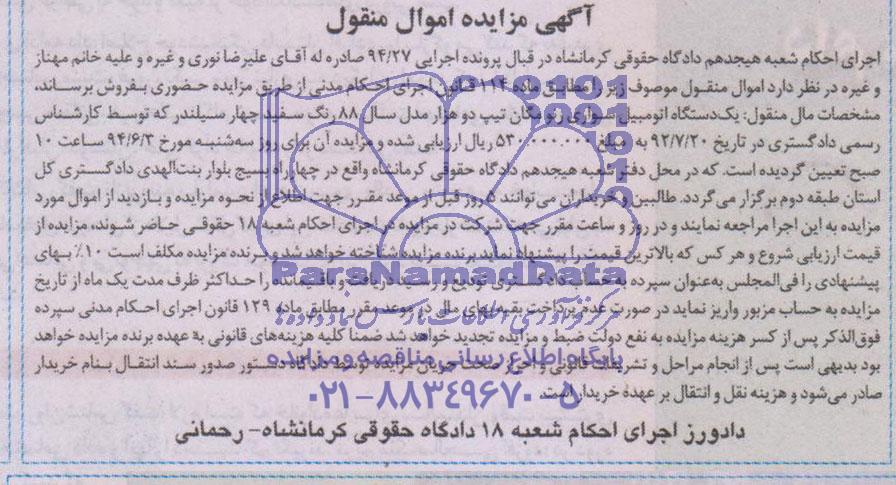 آگهی مزایده اموال منقول
اجرای احکام شعبه هیجدهم دادگاه حقوقی کرمانشاه در قبال پرونده اجرایی ۹۴/۲۷ صادره له آقای علیرضا نوری و غیره و علیه خانم مهناز
و غیره در نظر دارد اموال منقول موصوف زیر را مطابق ماده ۱۱۴ قانون اجرای احکام مدنی از طریق مزایده حضوری بفروش برساند،
مشخصات مال منقول: یک‌دستگاه اتومبیل سواری رنو مگان تیپ دو هزار مدل سال ۸۸ رنگ سفید چهار سیلندر که توسط کارشناس
رسمی دادگستری در تاریخ ۹۲/۷/۲۰ به مبلغ ۵۳۰,۰۰۰,۰۰۰ ریال ارزیابی شده و مزایده آن برای روز سه‌شنبه مورخ ۹۴/۶/۳ ساعت ۱۰
صبح تعیین گردیده است. که در محل دفتر شعبه هیجدهم دادگاه حقوقی کرمانشاه واقع در چهارراه بسیج بلوار بنت‌الهدی دادگستری کل
استان طبقه دوم برگزار می‌گردد. طالبین و خریداران می‌توانند ۵ روز قبل از موعد مقرر جهت اطلاع از نحوه مزایده و بازدید از اموال مورد
مزایده به این اجرا مراجعه نمایند و در روز و ساعت مقرر جهت شرکت در مزایده در اجرای احکام شعبه ۱۸ حقوقی حاضر شوند، مزایده از
قیمت ارزیابی شروع و هر کس که بالاترین قیمت را پیشنهاد نماید برنده مزایده شناخته خواهد شد و برنده مزایده مکلف است ۱۰٪ بهای
پیشنهادی را فی‌المجلس به‌عنوان سپرده به حساب دادگستری تودیع و رسید دریافت و باقیمانده را حداکثر ظرف مدت یک ماه از تاریخ
مزایده به حساب مزبور واریز نماید در صورت عدم پرداخت بقیه بهای مال در موعد مقرر مطابق ماده ۱۲۹ قانون اجرای احکام مدنی سپرده
فوق‌الذکر پس از کسر هزینه مزایده به نفع دولت ضبط و مزایده تجدید خواهد شد ضمناً کلیه هزینه‌های قانونی به عهده برنده مزایده خواهد
بود بدیهی است پس از انجام مراحل و تشریفات قانونی و احراز صحت جریان مزایده توسط دادگاه دستور صدور سند انتقال بنام خریدار
صادر می‌شود و هزینه نقل و انتقال بر عهده خریدار است.
دادورز اجرای احکام شعبه ۱۸ دادگاه حقوقی کرمانشاه- رحمانی
ParsNamadData
پایگاه اطلاع رسانی مناقصه و مزایده
۰۲۱-۸۸۳۴۹۶۷۰-۵